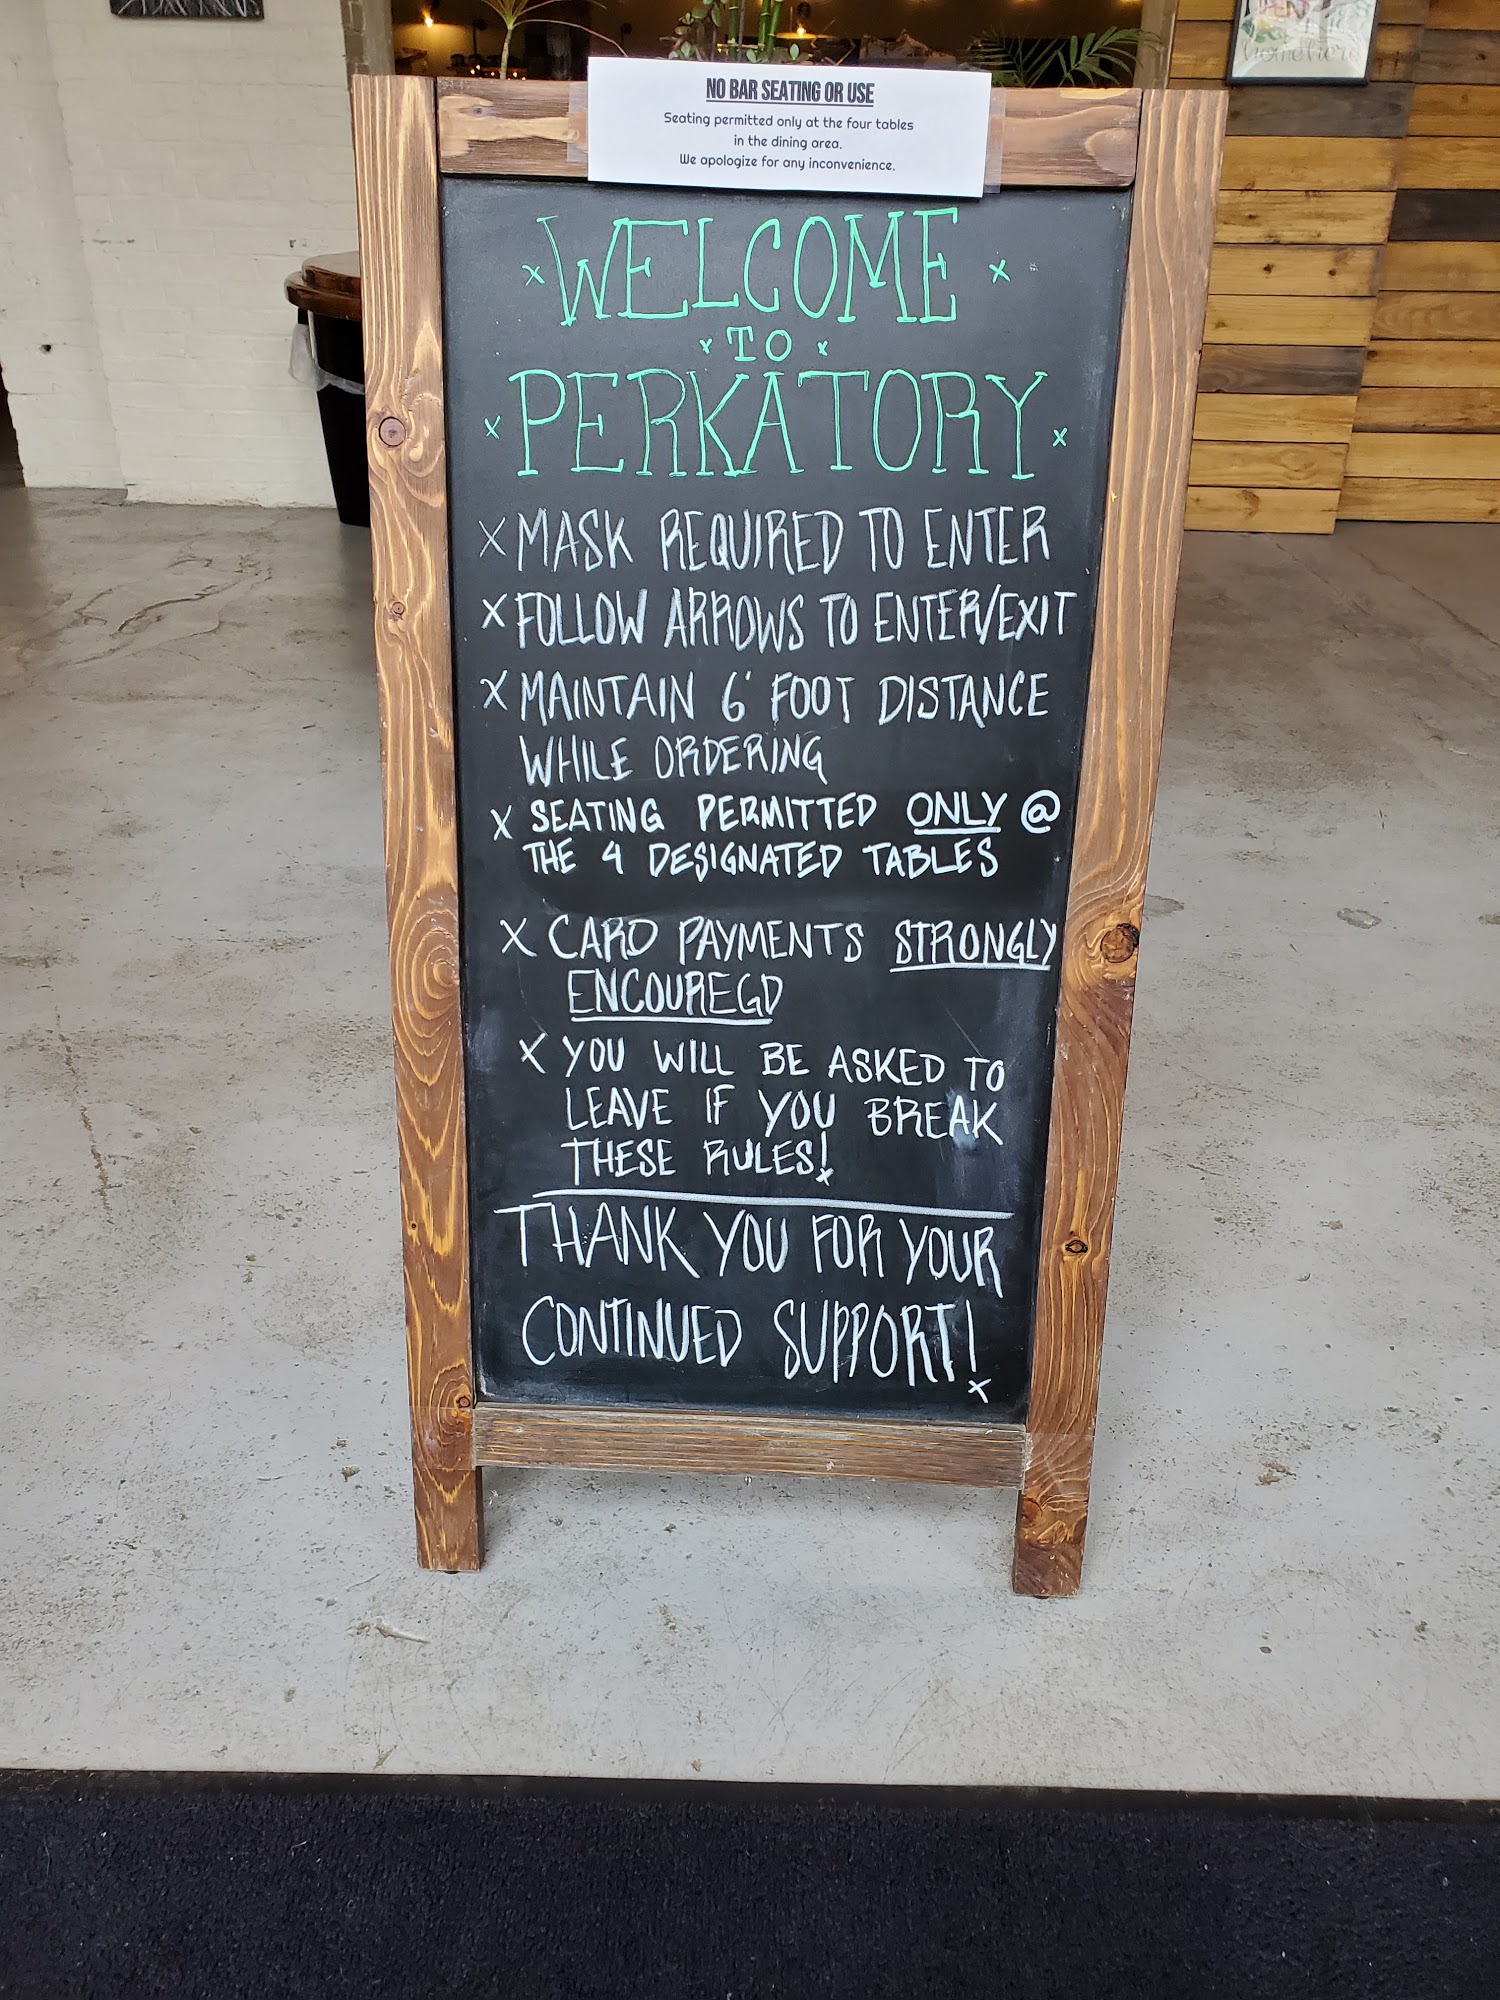 NO BAR SEATING OR USE
Seating permitted only at the four tables
in the dining area.
We apologize for any inconvenience.
x WELCOME x
x TO x
x PERKATORY x
X MASK REQUIRED TO ENTER
X FOLLOW ARROWS TO ENTER/EXIT
X MAINTAIN 6' FOOT DISTANCE
WHILE ORDERING
X SEATING PERMITTED ONLY @
THE 4 DESIGNATED TABLES
X CARD PAYMENTS STRONGLY
ENCOUREGD
X YOU WILL BE ASKED TO
LEAVE IF YOU BREAK
THESE RULES!
THANK YOU FOR YOUR
CONTINUED SUPPORT!